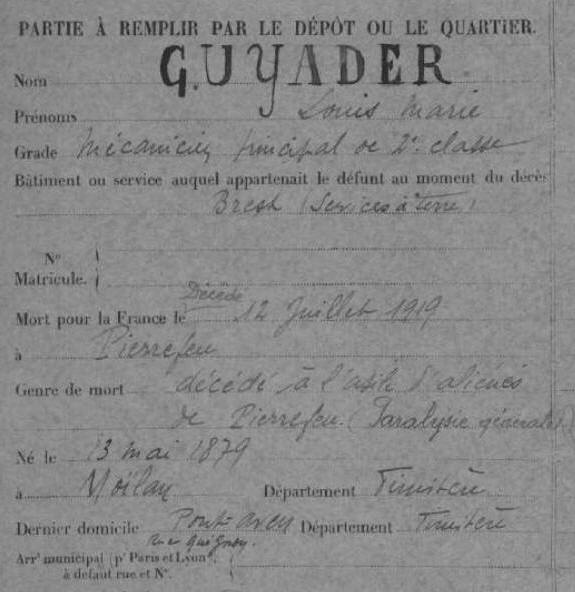 PARTIE À REMPLIR PAR LE DÉPÔT OU LE QUARTIER.
Nom GUYADER
Prénoms Louis Marie
Grade Mécanicien principal de 2e classe
Bâtiment ou service auquel appartenait le défunt au moment du décès
Brest (Services à terre)
No
Matricule.
Décédé
Mort pour la France le 12 Juillet 1919
à Pierrefeu
Genre de mort décédé à l'asile d'aliénés
de Pierrefeu. (Paralysie générale)
Né le 13 mai 1879
à Moëlan Département Finistère
Dernier domicile Pont-Aven Département Finistère
rue
Arrt municipal (pr Paris et Lyon),
à défaut rue et No.